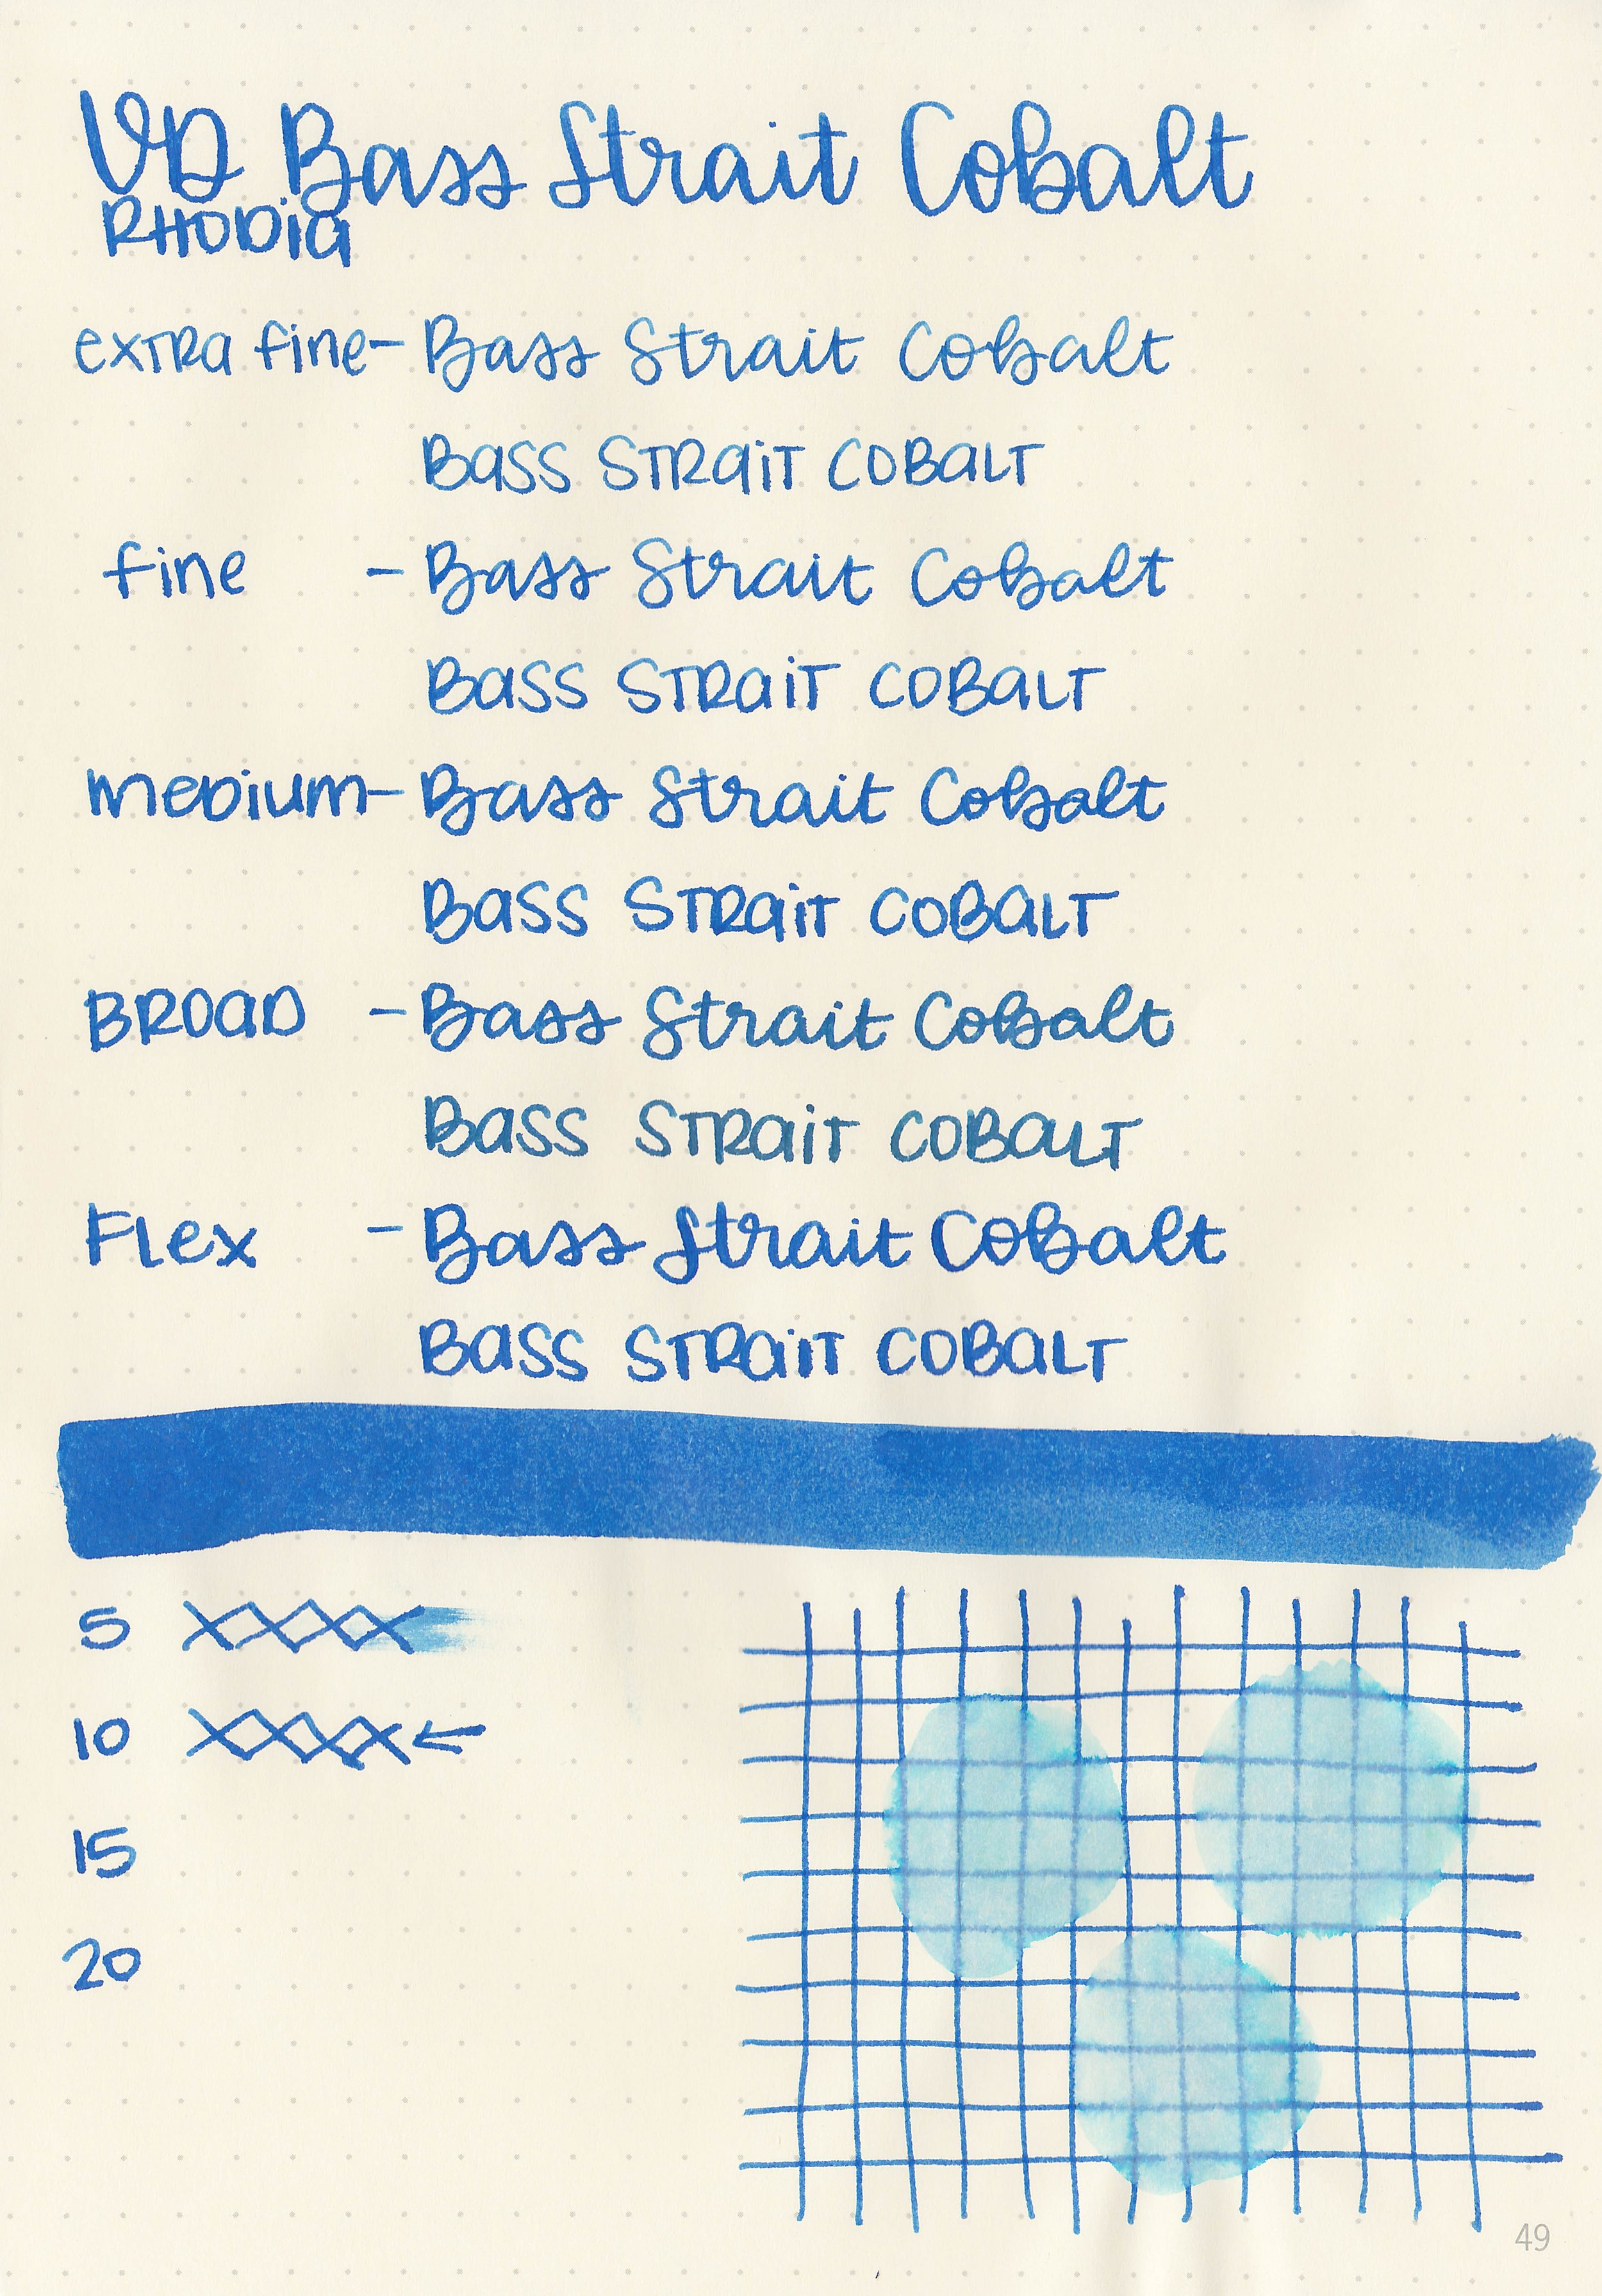 VD Bass Strait Cobalt
RHODia
exTRa fine- Bass Strait Cobalt
BaSS STRaiT COBaLT
fine - Bass Strait Cobalt
BaSS STRaiT COBaLT
meDium- Bass Strait Cobalt
BaSS STRaiT COBaLT
BROaD - Bass Strait Cobalt
BaSS STRaiT COBaLT
FLex - Bass Strait Cobalt
BaSS STRaiT COBaLT
5 XXXX
10 XXXX ←
15
20
49